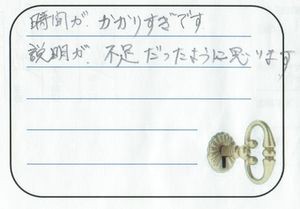 時間が、かかりすぎです
説明が、不足だったように思います